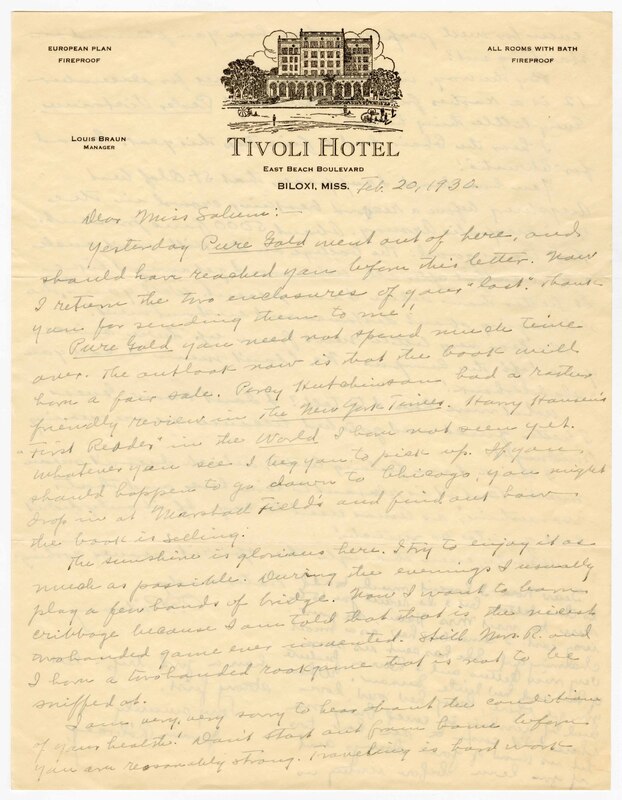 EUROPEAN PLAN
FIREPROOF
ALL ROOMS WITH BATH
FIREPROOF
LOUIS BRAUN
MANAGER
TIVOLI HOTEL
EAST BEACH BOULEVARD
BILOXI, MISS. Feb. 20, 1930.
Dear Miss
Yesterday Pure Gold went out of here, and
should have reached you before this letter. Now
I return the two enclosures of your "last." Thank
you for sending them to me!
Pure Gold you need not spend much time
over. The outlook now is that the book will
have a fair sale. Percy Hutchinson had a rather
friendly review in The New York Times. Harry Hansen's
"First Reader" in the World I have not seen yet.
Whatever you see I beg you to pick up. If you
should happen to go down to Chicago, you might
drop in at Marshall Field's and find out how
the book is selling.
The sunshine is glorious here. I try to enjoy it as
much as possible. During the evenings I usually
play a few hands of bridge. Now I want to learn
cribbage because I am told that that is the nicest
twohanded game ever invented. Still Mrs. R. and
I have a twohanded rookgame that is not to be
sniffed at.
I am, very, very sorry to hear about the condition
of your health! Don't start out from home before
you are reasonably strong. Travelling is hard work